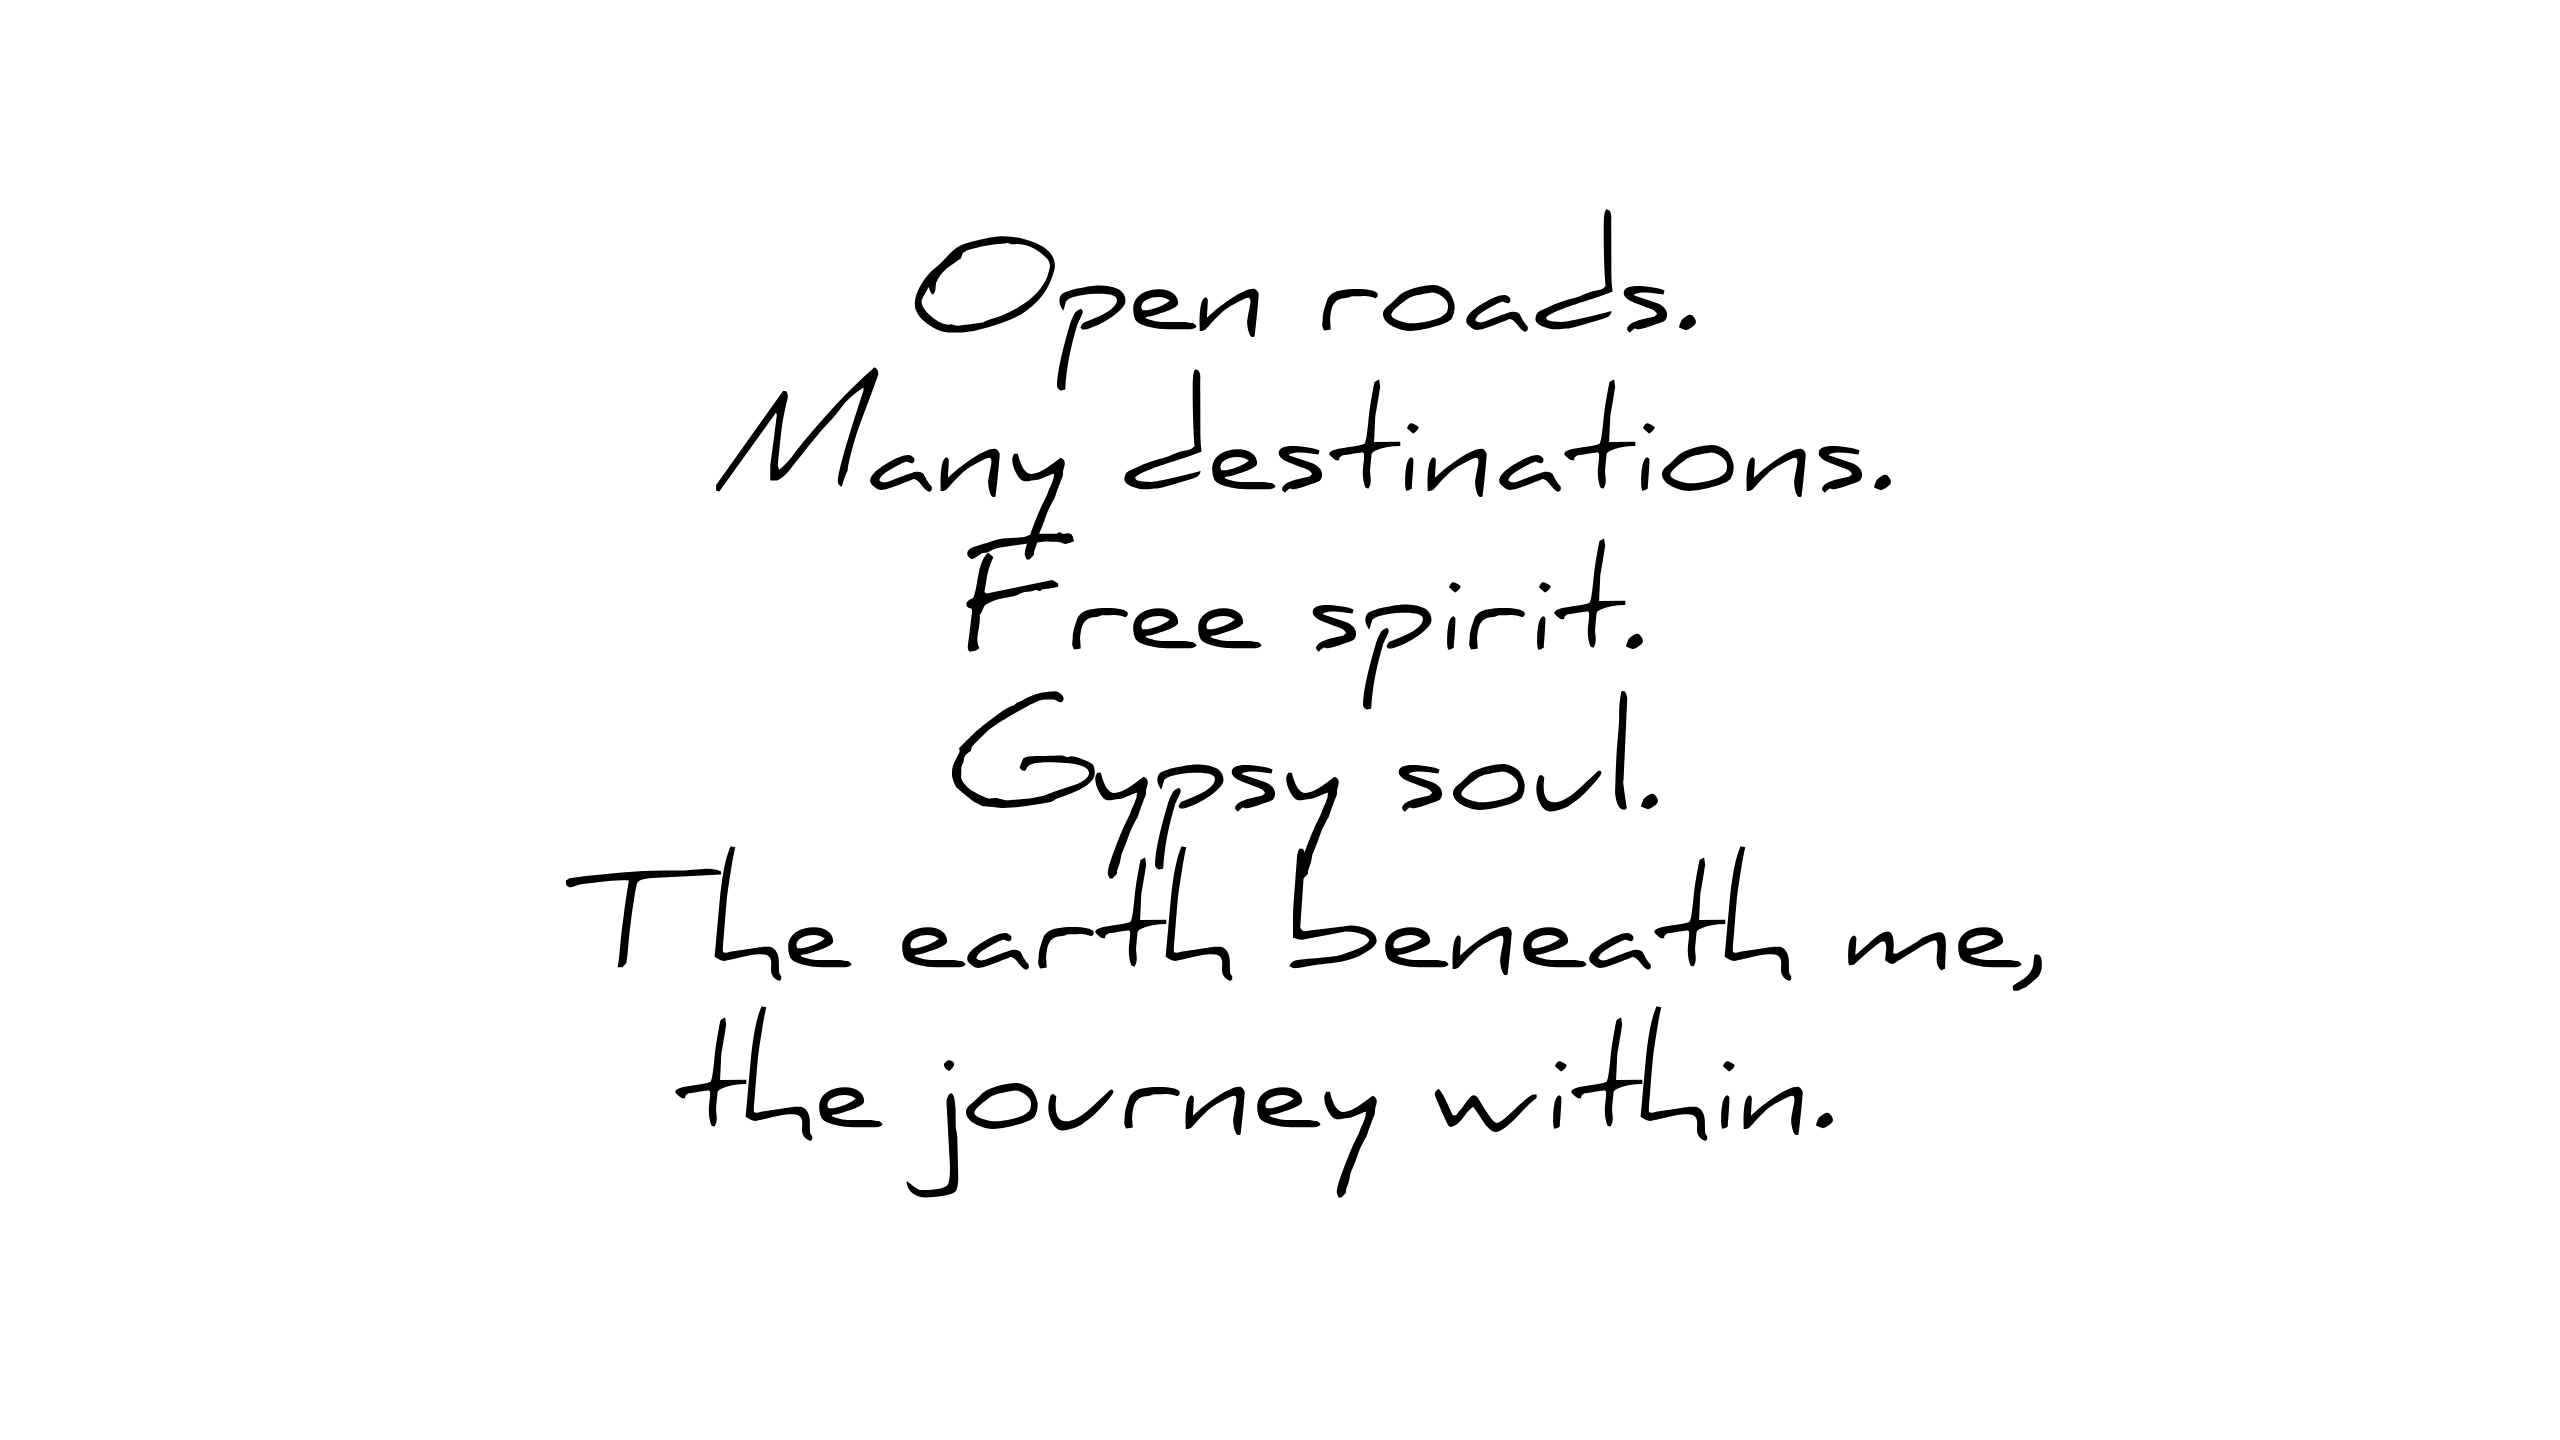 Open roads.
Many destinations.
Free spirit.
Gypsy soul.
The earth beneath me,
the journey within.